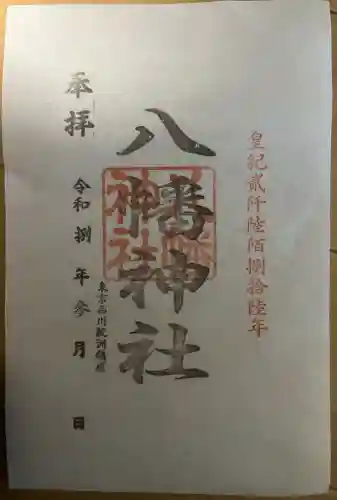 皇紀貳阡陸陌捌拾陸年
八幡神社
八幡
神社
東京品川鮫洲鎮座
奉拝
令和捌年参月 日